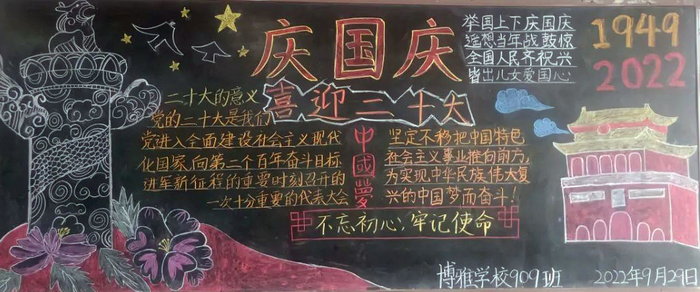 庆国庆
喜迎二十大
举国上下庆国庆
遥想当年战鼓惊
全国人民齐祝兴
皆出儿女爱国心
1949
2022
二十大的意义
党的二十大是我们
党进入全面建设社会主义现代
化国家、向第二个百年奋斗目标
进军新征程的重要时刻召开的
一次十分重要的代表大会
中國夢
坚定不移把中国特色
社会主义事业推向前方,
为实现中华民族伟大复
兴的中国梦而奋斗!
不忘初心;牢记使命
博雅学校909班
2022年9月29日